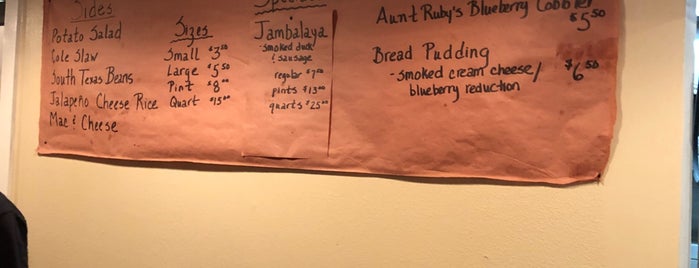 Sides
Potato Salad
Cole Slaw
South Texas Beans
Jalapeño Cheese Rice
Mac & Cheese
Sizes
Small $3.50
Large $5.50
Pint $8.00
Quart $15.00
Jambalaya
-smoked duck
& sausage
regular $7.00
pints $13.00
quarts $25.00
Aunt Ruby's Blueberry Cobbler
$5.50
Bread Pudding
-smoked cream cheese/
blueberry reduction
$6.50